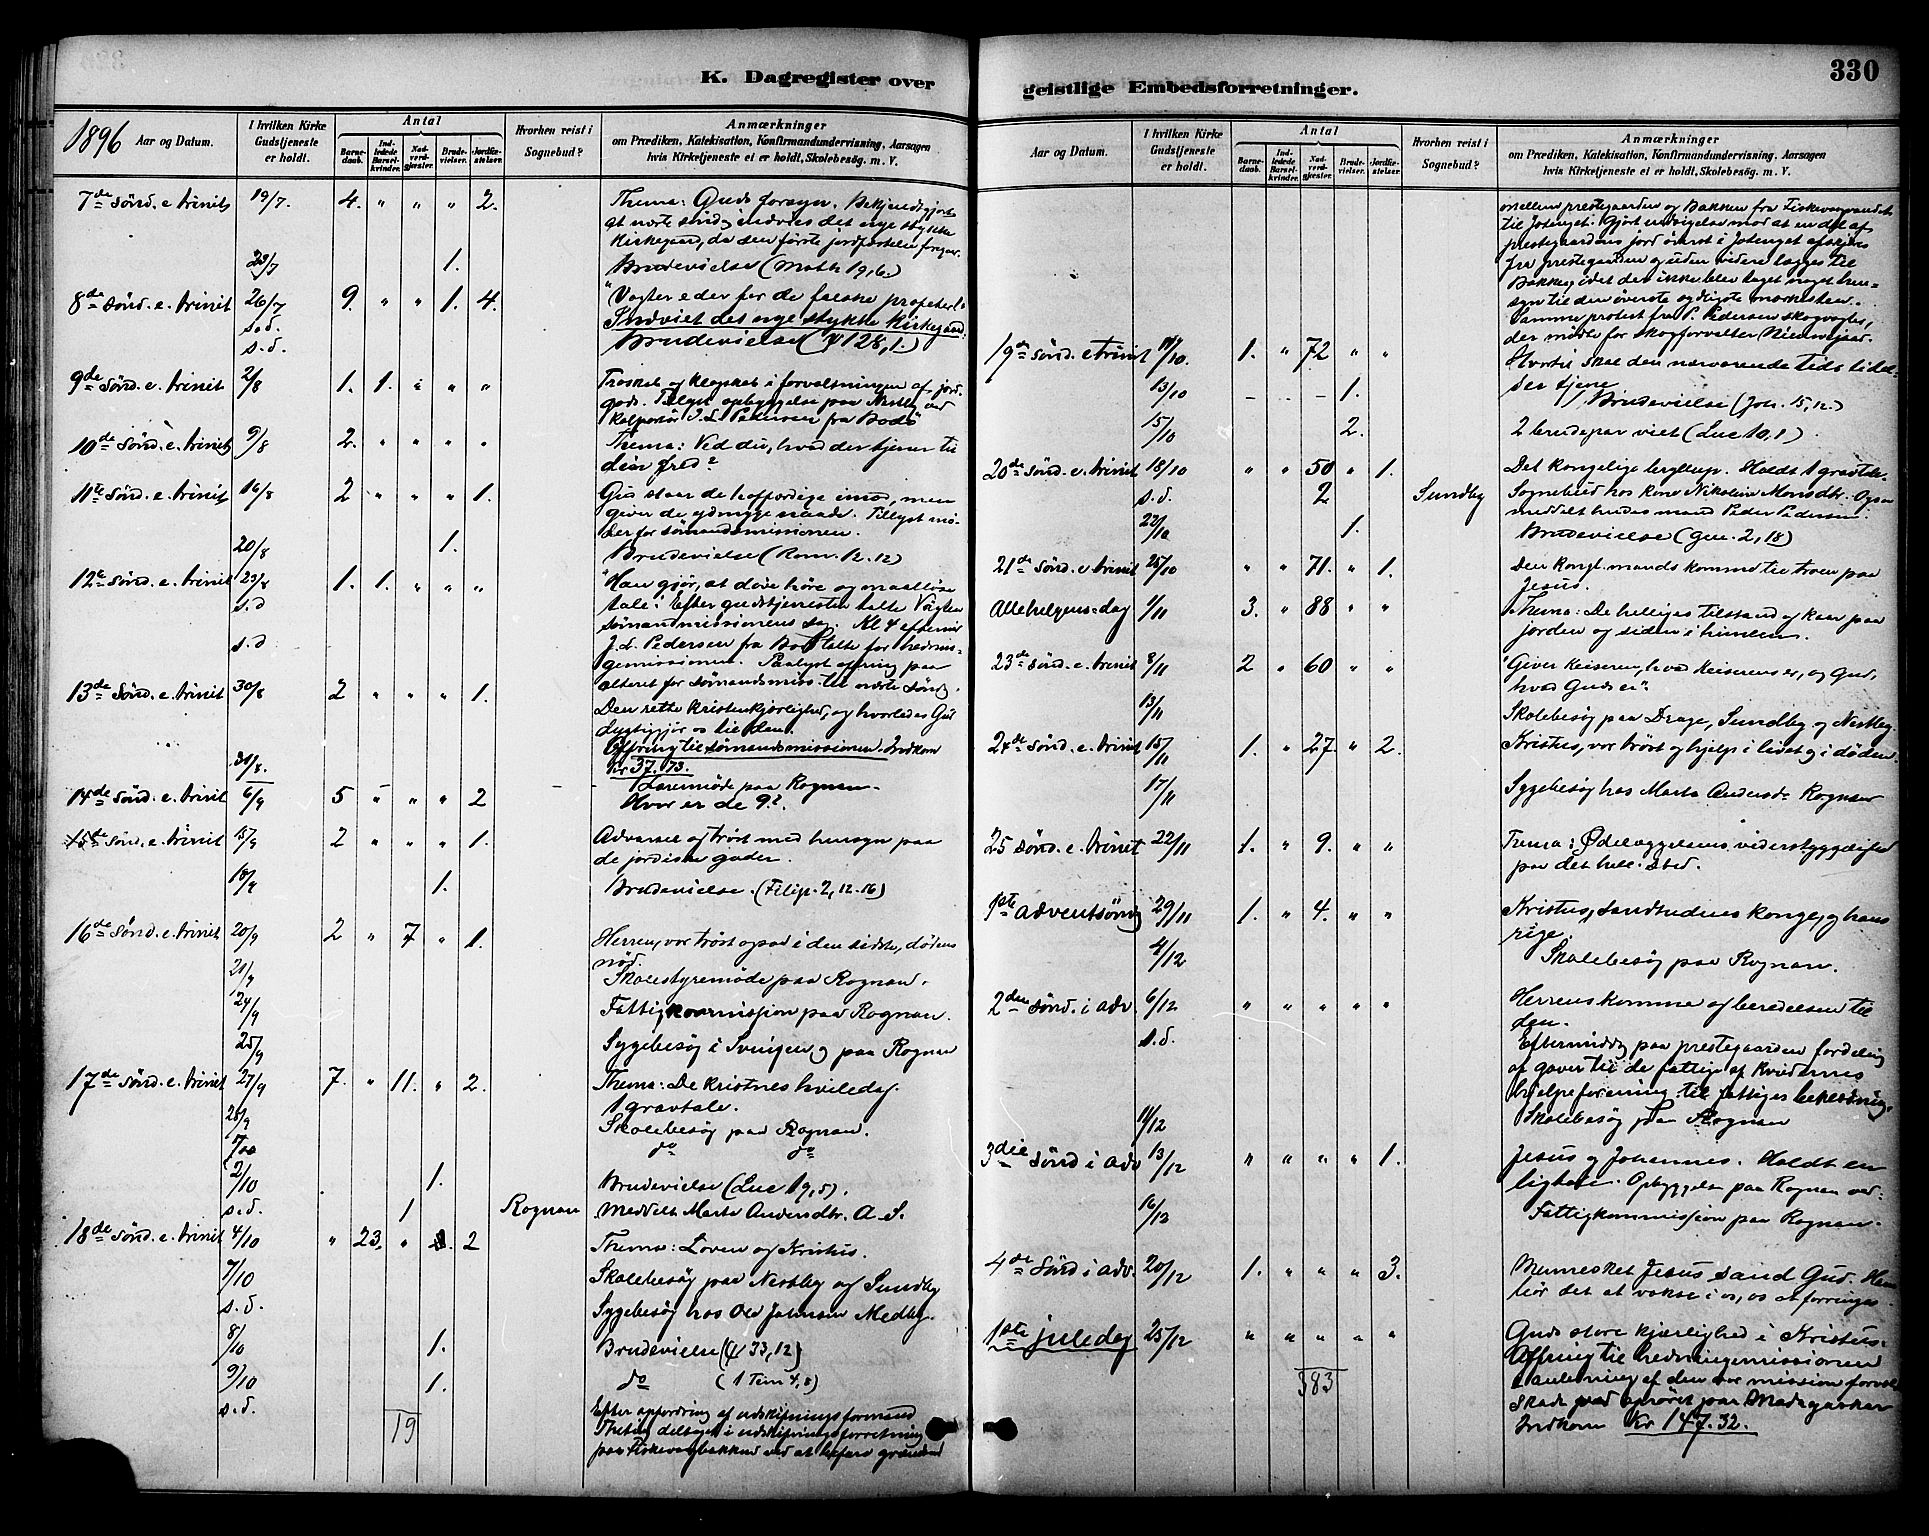 K. Dagregister over
1896 Aar og Datum.
I hvilken Kirke Gudstjeneste er holdt.
Antal
Barnedaab.
Indledede Barselkvinder.
Nadverdgjester.
Brudevielser.
Jordfæstelser.
Hvorhen reist i Sognebud?
Anmærkninger
om Prædiken, Katekisation, Konfirmandundervisning, Aarsagen
hvis Kirketjeneste ei er holdt, Skolebesøg. m. V.
7de Sønd. e. trinit 19/7. 4. " " " 2. Thema: Guds forsyn. Bekjendtgjort
at næste søndag indvies det nye stykke
Kirkegaard, da den første jordfæstelse foregaar.
23/7 1. Brudevielse (Math 19,6.)
8de Sønd. e. trinit 26/7 9. " " 1. 4. "Vogter eder for de falske profeter".
s.d. Indviet det nye stykke Kirkegaard.
s.d. Brudevielse (ψ 128,1.)
9de Sønd. e. trinit 2/8 1. 1. " " " Troskab og klogskab i forvaltningen af jord.
gods. Tillyst opbyggelse paa Nestby ved
Kolportør J. L. Pedersen fra Bodø
10de Sønd. e. trinit 9/8 2. " " " " Thema: Ved du, hvad der tjener til
din fred?
11te Sønd. e. trinit 16/8 2 " " " 1. Gud staar de hoffærdige imod, men
giver de ydmyge naade. Tillyst mø-
der for sømandsmissionen.
20/8 1. Brudevielse (Rom. 12.12)
12te Sønd. e. trinit 23/8 1. 1. " " " "Han gjør, at døve høre og maalløse
s.d tale". Efter gudstjenesten talte Vigten
sømandsmissionens sag. Kl 4 eftermid
s.d J. L. Pedersen fra Bodø talte for hednin-
gemissionen. Paalyst ofring paa
alteret for sømandsmiss. til næste Sønd.
13de Sønd. e. trinit 30/8 2 " " " 1. Den rette kristenkjærlighed, og hvorledes Gud
dygtiggjør os til den.
Ofring til sømandsmissionen. Indkom
Kr 37.73.
31/8. Læremøde paa Rognan.
14de Sønd. e. trinit 6/9 5 " " " 2 Hvor er de 9?
15de Sønd. e. trinit 13/9 2 " " " 1. Advarsel og trøst med hensyn paa
de jordiske goder.
18/9 1. Brudevielse. (Filip. 2,12-16)
16de Sønd. e. trinit 20/9 2 " 7 " 1. Herren, vor trøst ogsaa i den sidste, dødens
nød.
21/9 Skolestyremøde paa Rognan.
24/9 Fattigkommission paa Rognan.
25/9 Sygebesøg i Svingen og paa Rognan
17de Sønd. e. trinit 27/9 7. " 11. " 2. Thema: De kristnes hviledag.
1 gravtale.
28/9 Skolebesøg paa Rognan.
do do
2/10 1. Brudevielse (Luc 19,5).
s.d. 1 Rognan Meddelt Marta Andersdtr. A. S.
18de Sønd. e. trinit 4/10 " 23. " 2 Thema: Loven og Kristus.
7/10 Skolebesøg paa Nestby og Sundby
s.d. Sygebesøg hos Ole Johnsen Medby.
8/10 1. Brudevielse (ψ 33,12)
9/10 1. do (1 Tim 4,8)
s.d. 19 Efter opfordring af udskiftningsformand
deltaget i udskiftningsforretning
paa Fiskevaagbakken ved at befare grændsen
geistlige Embedsforretninger.
330
Aar og Datum.
I hvilken Kirke Gudstjeneste er holdt.
Antal
Barnedaab.
Indledede Barselkvinder.
Nadverdgjester.
Brudevielser.
Jordfæstelser.
Hvorhen reist i Sognebud?
Anmærkninger
om Prædiken, Katekisation, Konfirmandundervisning, Aarsagen
hvis Kirketjeneste ei er holdt, Skolebesøg. m. V.
mellem prestegaarden og Bakken fra Fiskevaagvandet
til Jotenget. Gjort indsigelse mod at en del af
prestegaardens jord øverst i Jotenget afskjæres
fra prestegaarden og uden videre lægges til
Bakken, idet der ikke blev taget noget hen-
syn til den øverste og ældste merkesten.
Samme protest fra P. Pedersen skogvogter,
der mødte for skogforvalter
19de Sønd. e trinit 11/10. 1. " 72 " " Hvortil skal den nærværende tids lidel-
ser tjene
13/10 - - - 1. Brudevielse (Joh. 15,12.)
15/10 2. 2 brudepar viet (Luc 10,1).
20de Sønd. e. trinit 18/10 " " 50 " 1. Det kongelige bryllup. Holdt 1 gravtale.
s.d. 2 Sundby Sognebud hos kone Nikoline Monsdtr. Ogsaa
meddelt hendes mand Peder Pedersen
22/10 1. Brudevielse (gen. 2,18)
21de Sønd. e. trinit 25/10 " " 71. " 1. Den kongl. mands komme til troen paa
Jesus.
Allehelgensdag 1/11 3. " 88 " " Thema: De helliges tilstand og kaar paa
jorden og siden i himlen.
23de Sønd. e. trinit 8/11 2 " 60 " " "Giver keiseren, hvad keiserens er, og Gud,
hvad Guds er".
13/11 Skolebesøg paa Drage, Sundby og Nestby.
24de Sønd. e. trinit 15/11 1. " 27. " 2. Kristus, vor trøst og hjelp i livet og i døden.
17/11 Sygebesøg hos Marta Andersdr Rognan
25 Sønd. e. trinit 22/11 1. " 9. " " Thema: Ødelæggelsens vederstyggelighed
paa det hell. sted.
1ste adventsønd 29/11 1. " 4. " " Kristus, sandhedens konge, og hans
rige.
4/12 Skolebesøg paa Rognan.
2den Sønd. i adv. 6/12 " " " " " Herrens komme og beredelsen til
den.
s.d. Eftermiddag paa prestegaarden fordeling
af gaver til de fattige af Kvindernes
hjelpeforening til fattiges beklædning.
11/12 Skolebesøg paa Rognan
3die Sønd i adv 13/12 " " " " 1. Jesus og Johannes. Holdt en
ligtale. Opbyggelse paa Rognan
16/12 Fattigkommission paa Rognan.
4de Sønd i adv. 20/12 1. " " " 3. Mennesket Jesus, sand Gud. Ham
bør det at vokse i os, os at forringes.
1ste juledag 25/12 " " " " " Guds store kjærlighed i Kristus.
Offring til hedningemissionen
383 i anledning af den vor mission forvoldte
skade ved oprøret paa Madagaskar
Indkom Kr 147.32.